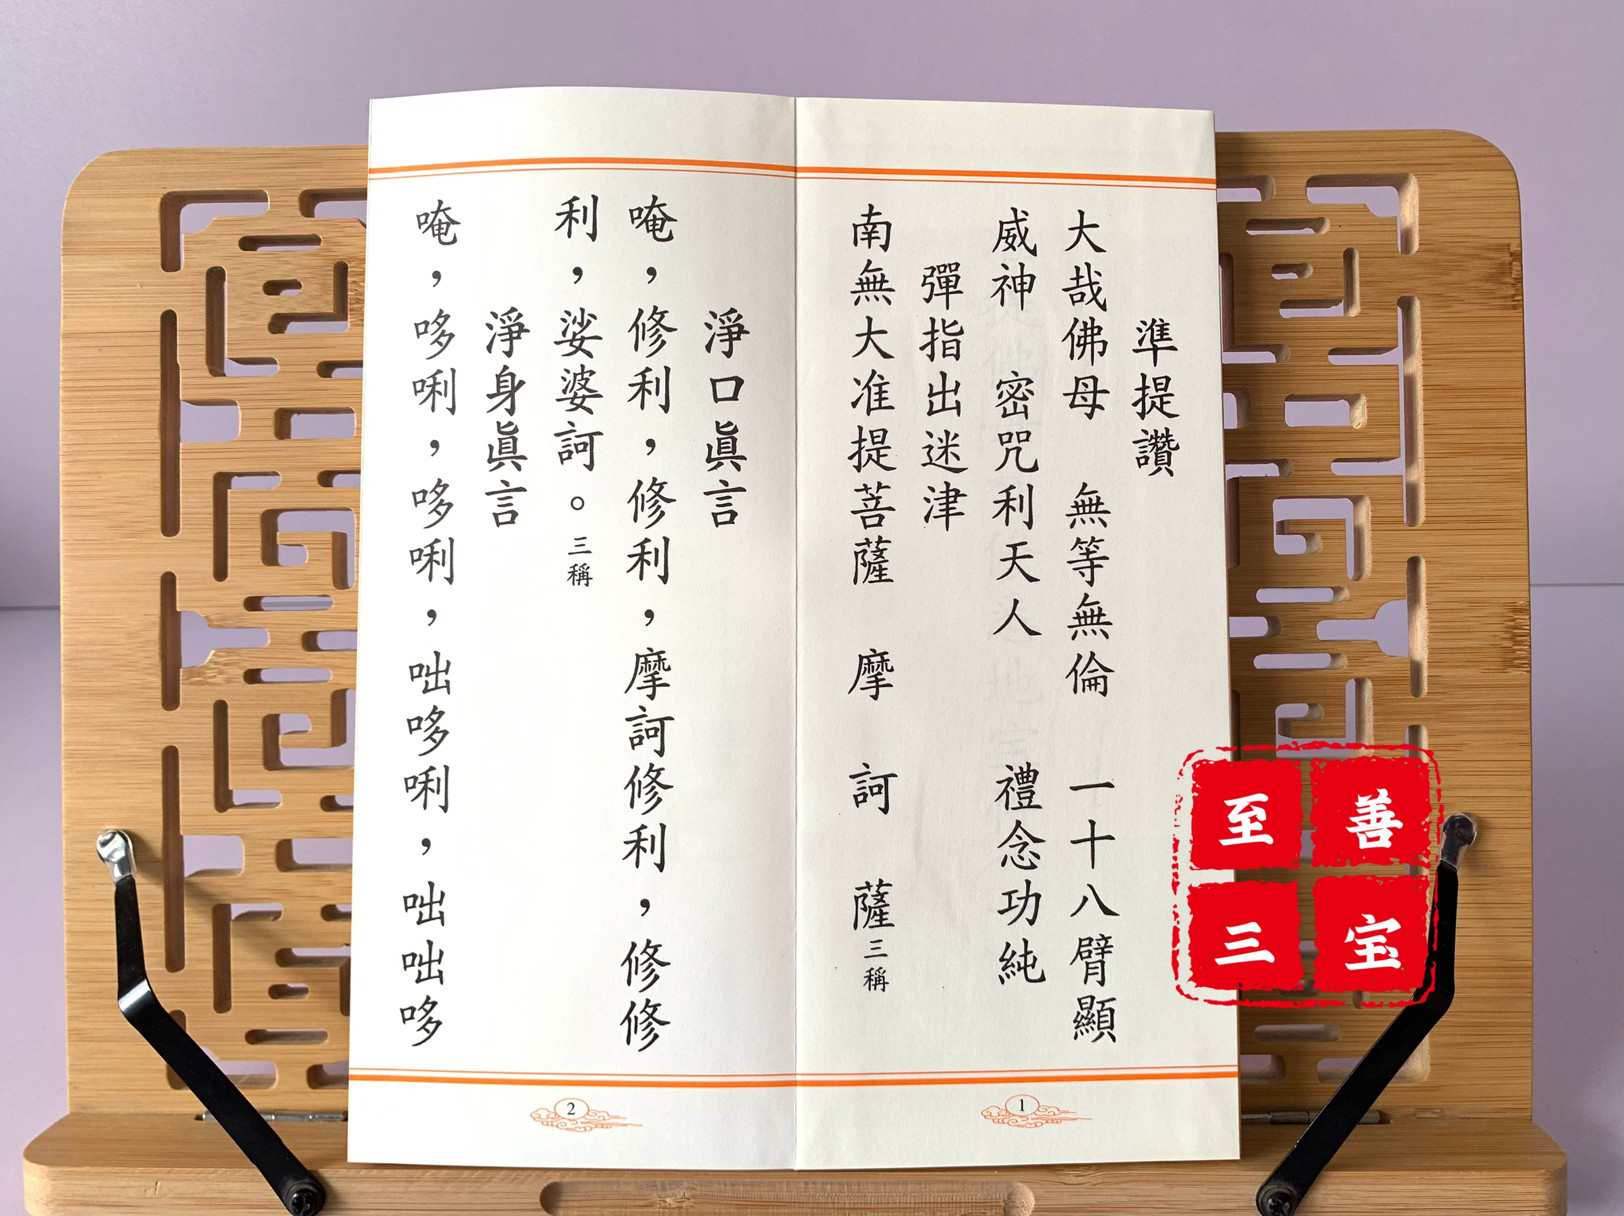 準提讚
大哉佛母　無等無倫　一十八臂顯
威神　密咒利天人　禮念功純
彈指出迷津
南無大准提菩薩　摩　訶　薩三稱
1
淨口眞言
唵，修利，修利，摩訶修利，修修
利，娑婆訶。三稱
淨身眞言
唵，哆唎，哆唎，咄哆唎，咄咄哆
2
至善
三宝